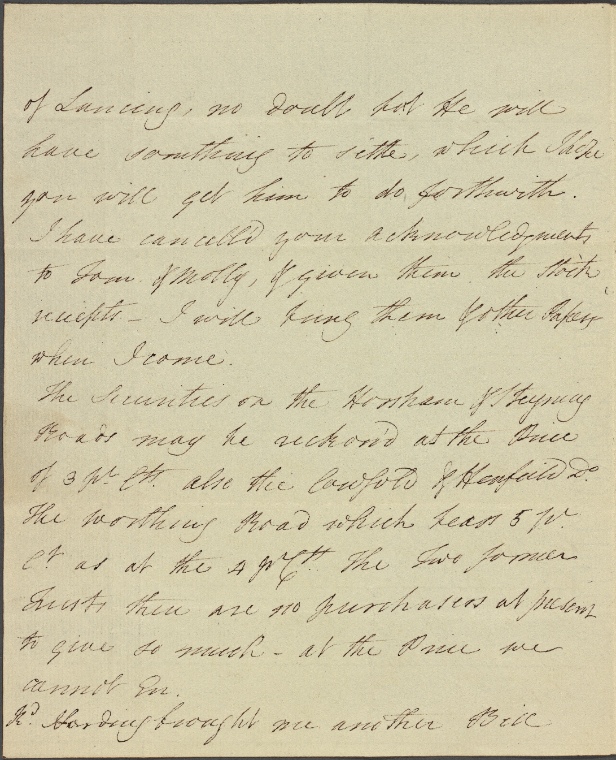 of Lancing, no doubt but He will
have something to settle, which I hope
you will get him to do forthwith.
I have cancelld your acknowledgments
to Tom. & Molly, & given them the Stock
receipts – I will bring them & other Papers
when I come.
The Securities on the Horsham & Steyning
Roads may be reckond at the Price
of 3 pr. Ct. also the Cowfold & Henfield Do.
The Worthing Road which bears 5 pr.
Ct as at the 4 pr Ct. The Two former
Trusts there are no purchasers at present
to give so much – at the Price we
cannot Err.
Rd. Harding brought me another Bill